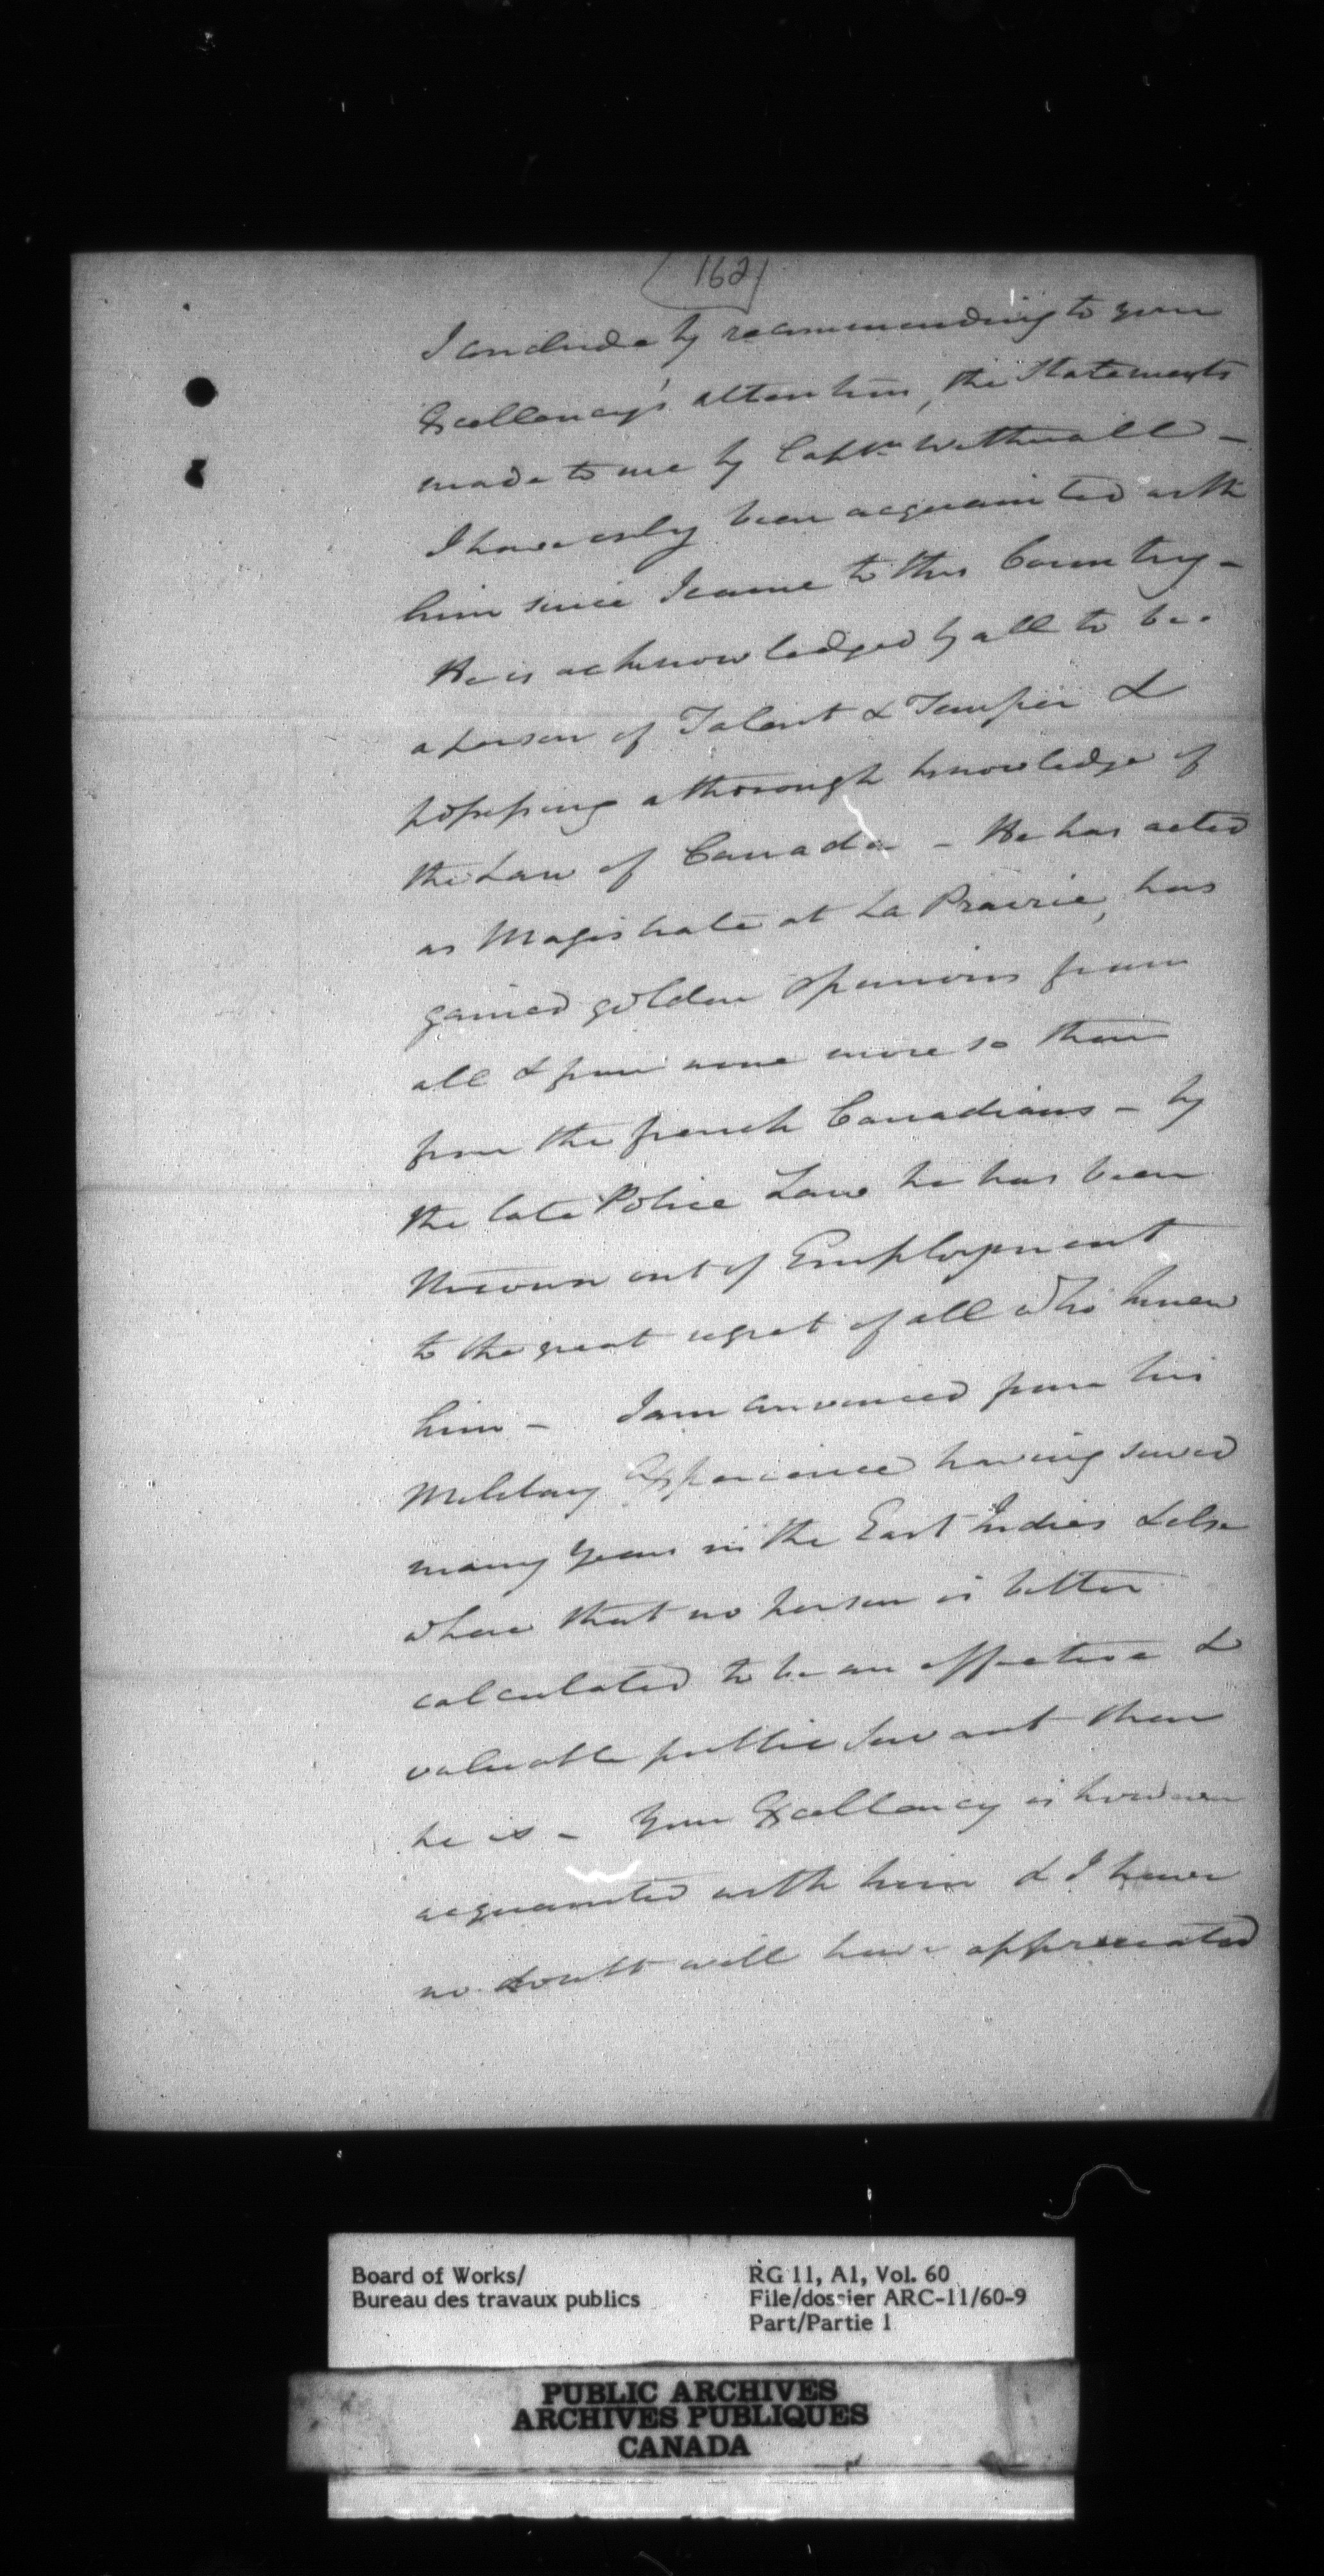 162
I conclude by recommending to your
Excellency's attention, the Statements
made to me by Captn Wetherall -
I have only been acquainted with
him since I came to this Country -
He is acknowledged by all to be
a person of Talent & Temper &
possessing a thorough knowledge of
the Law of Canada - He has acted
as Magistrate at La Prairie, has
gained golden opinions from
all & from none more so than
from the french Canadians - by
the late Police Law he has been
thrown out of Employment
to the great regret of all who knew
him - I am convinced from his
Military Experience having served
many years in the East Indies & else
where that no person is better
calculated to be an effective &
valuable public Servant than
he is - Your Excellency is however
acquainted with him & I have
no doubt will have appreciated
Board of Works/
Bureau des travaux publics
RG 11, A1, Vol. 60
File/dossier ARC-11/60-9
Part/Partie 1
PUBLIC ARCHIVES
ARCHIVES PUBLIQUES
CANADA